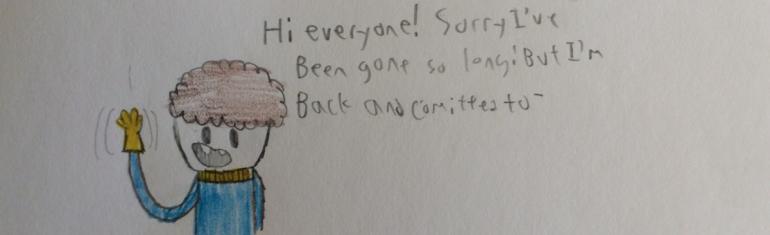 Hi everyone! Sorry I've
Been gone so long! But I'm
Back and comittes to-